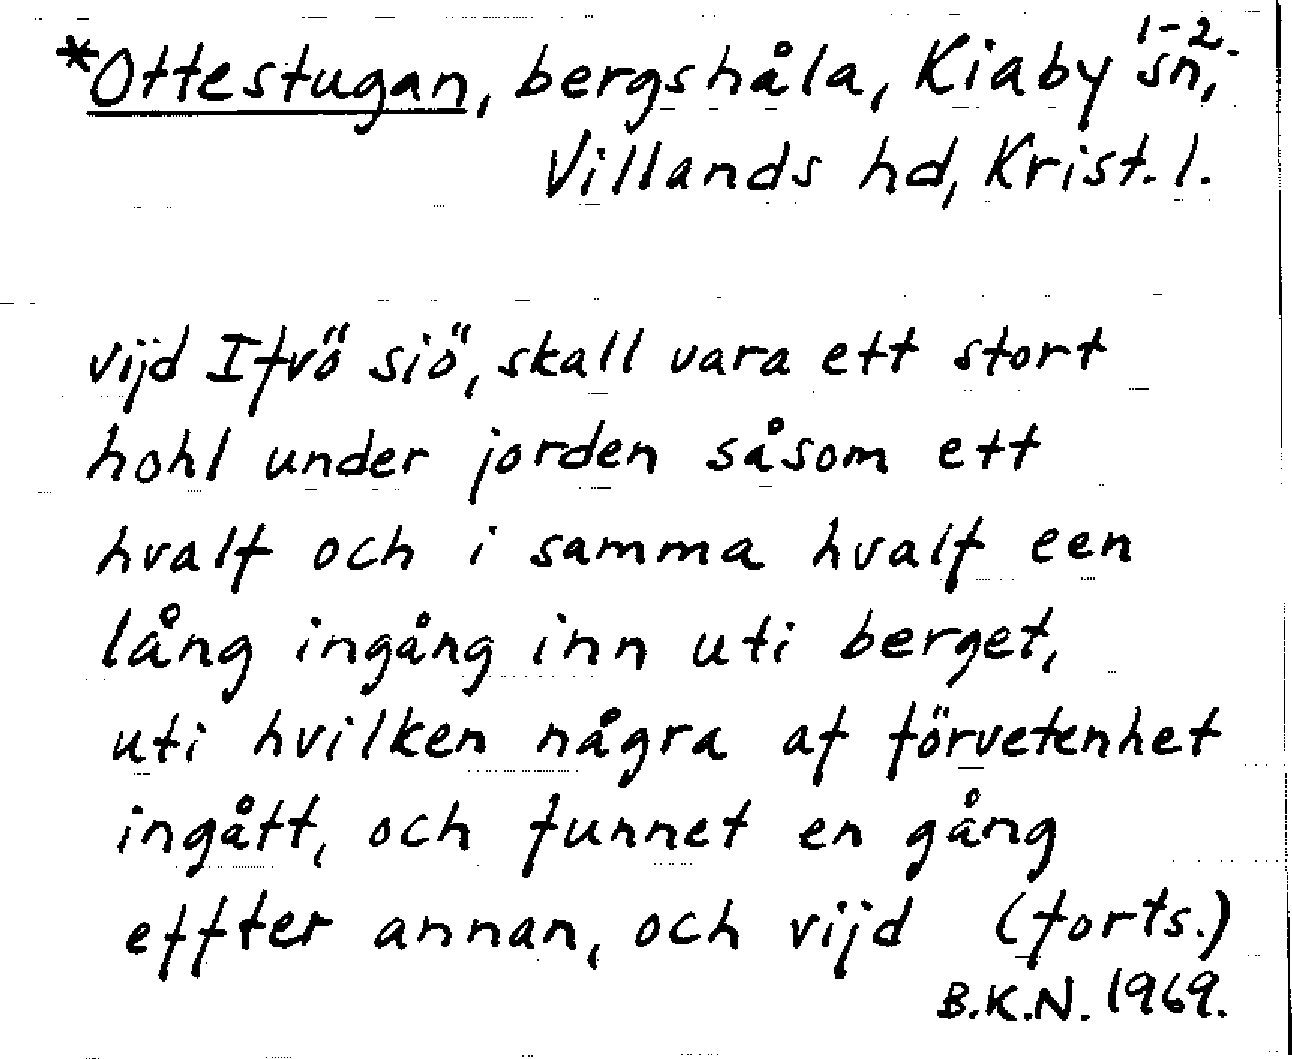 1-2.
*Ottestugan, bergshåla, Kiaby sn,
Villands hd, Krist. l.
vijd Ifvö siö, skall vara ett stort
hohl under jorden såsom ett
hvalf och i samma hvalf een
lång ingång inn uti berget,
uti hvilken några af förvetenhet
ingått, och funnet en gång
effter annan, och vijd (forts.)
B.K.N. 1969.